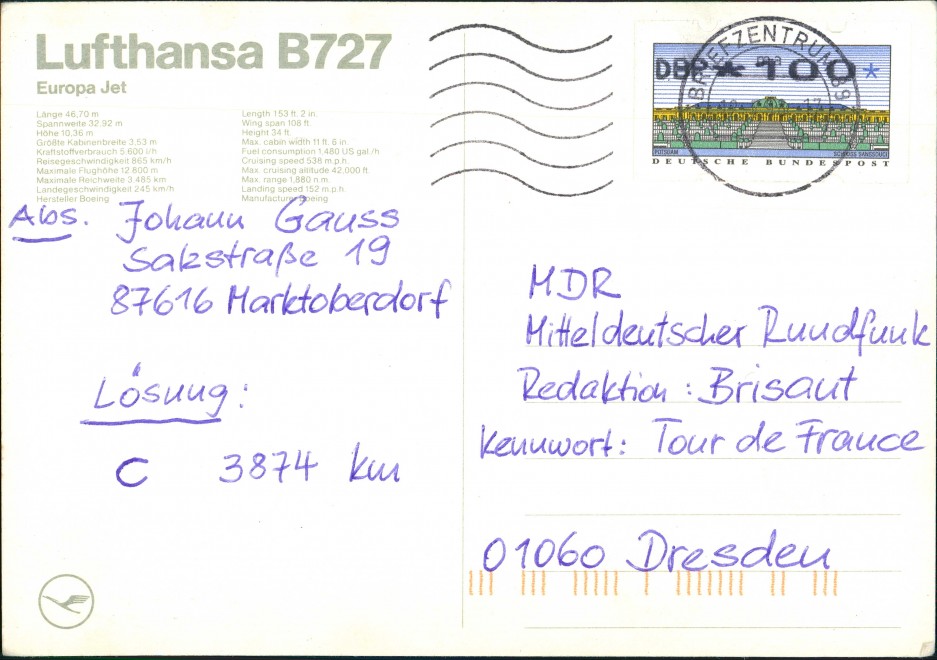 Lufthansa B727
Europa Jet
Länge 46,70 m
Spannweite 32,92 m
Höhe 10,36 m
Größte Kabinenbreite 3,53 m
Kraftstoffverbrauch 5.600 l/h
Reisegeschwindigkeit 865 km/h
Maximale Flughöhe 12.800 m
Maximale Reichweite 3.485 km
Landegeschwindigkeit 245 km/h
Hersteller Boeing
Length 153 ft. 2 in.
Wing span 108 ft.
Height 34 ft.
Max. cabin width 11 ft. 6 in.
Fuel consumption 1,480 US gal./h
Cruising speed 538 m.p.h.
Max. cruising altitude 42,000 ft.
Max. range 1,880 n.m.
Landing speed 152 m.p.h.
Manufacturer Boeing
BRIEFZENTRUM 89
DBP * 100 *
POTSDAM SCHLOSS SANSSOUCI
DEUTSCHE BUNDESPOST
Abs. Johann Gauss
Salzstraße 19
87616 Marktoberdorf
Lösung:
C 3874 km
MDR
Mitteldeutscher Rundfunk
Redaktion: Brisant
Kennwort: Tour de France
01060 Dresden